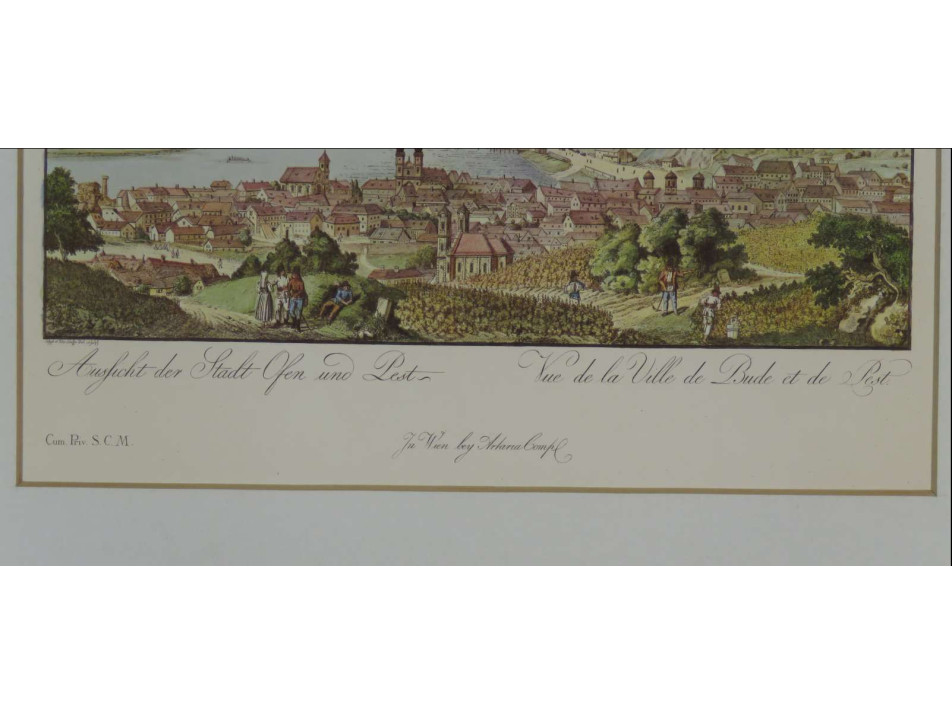 Aussicht der Stadt Ofen und Pest
Vue de la Ville de Bude et de Pest.
Cum. Priv. S. C. M.
In Wien bey Artaria Comp.